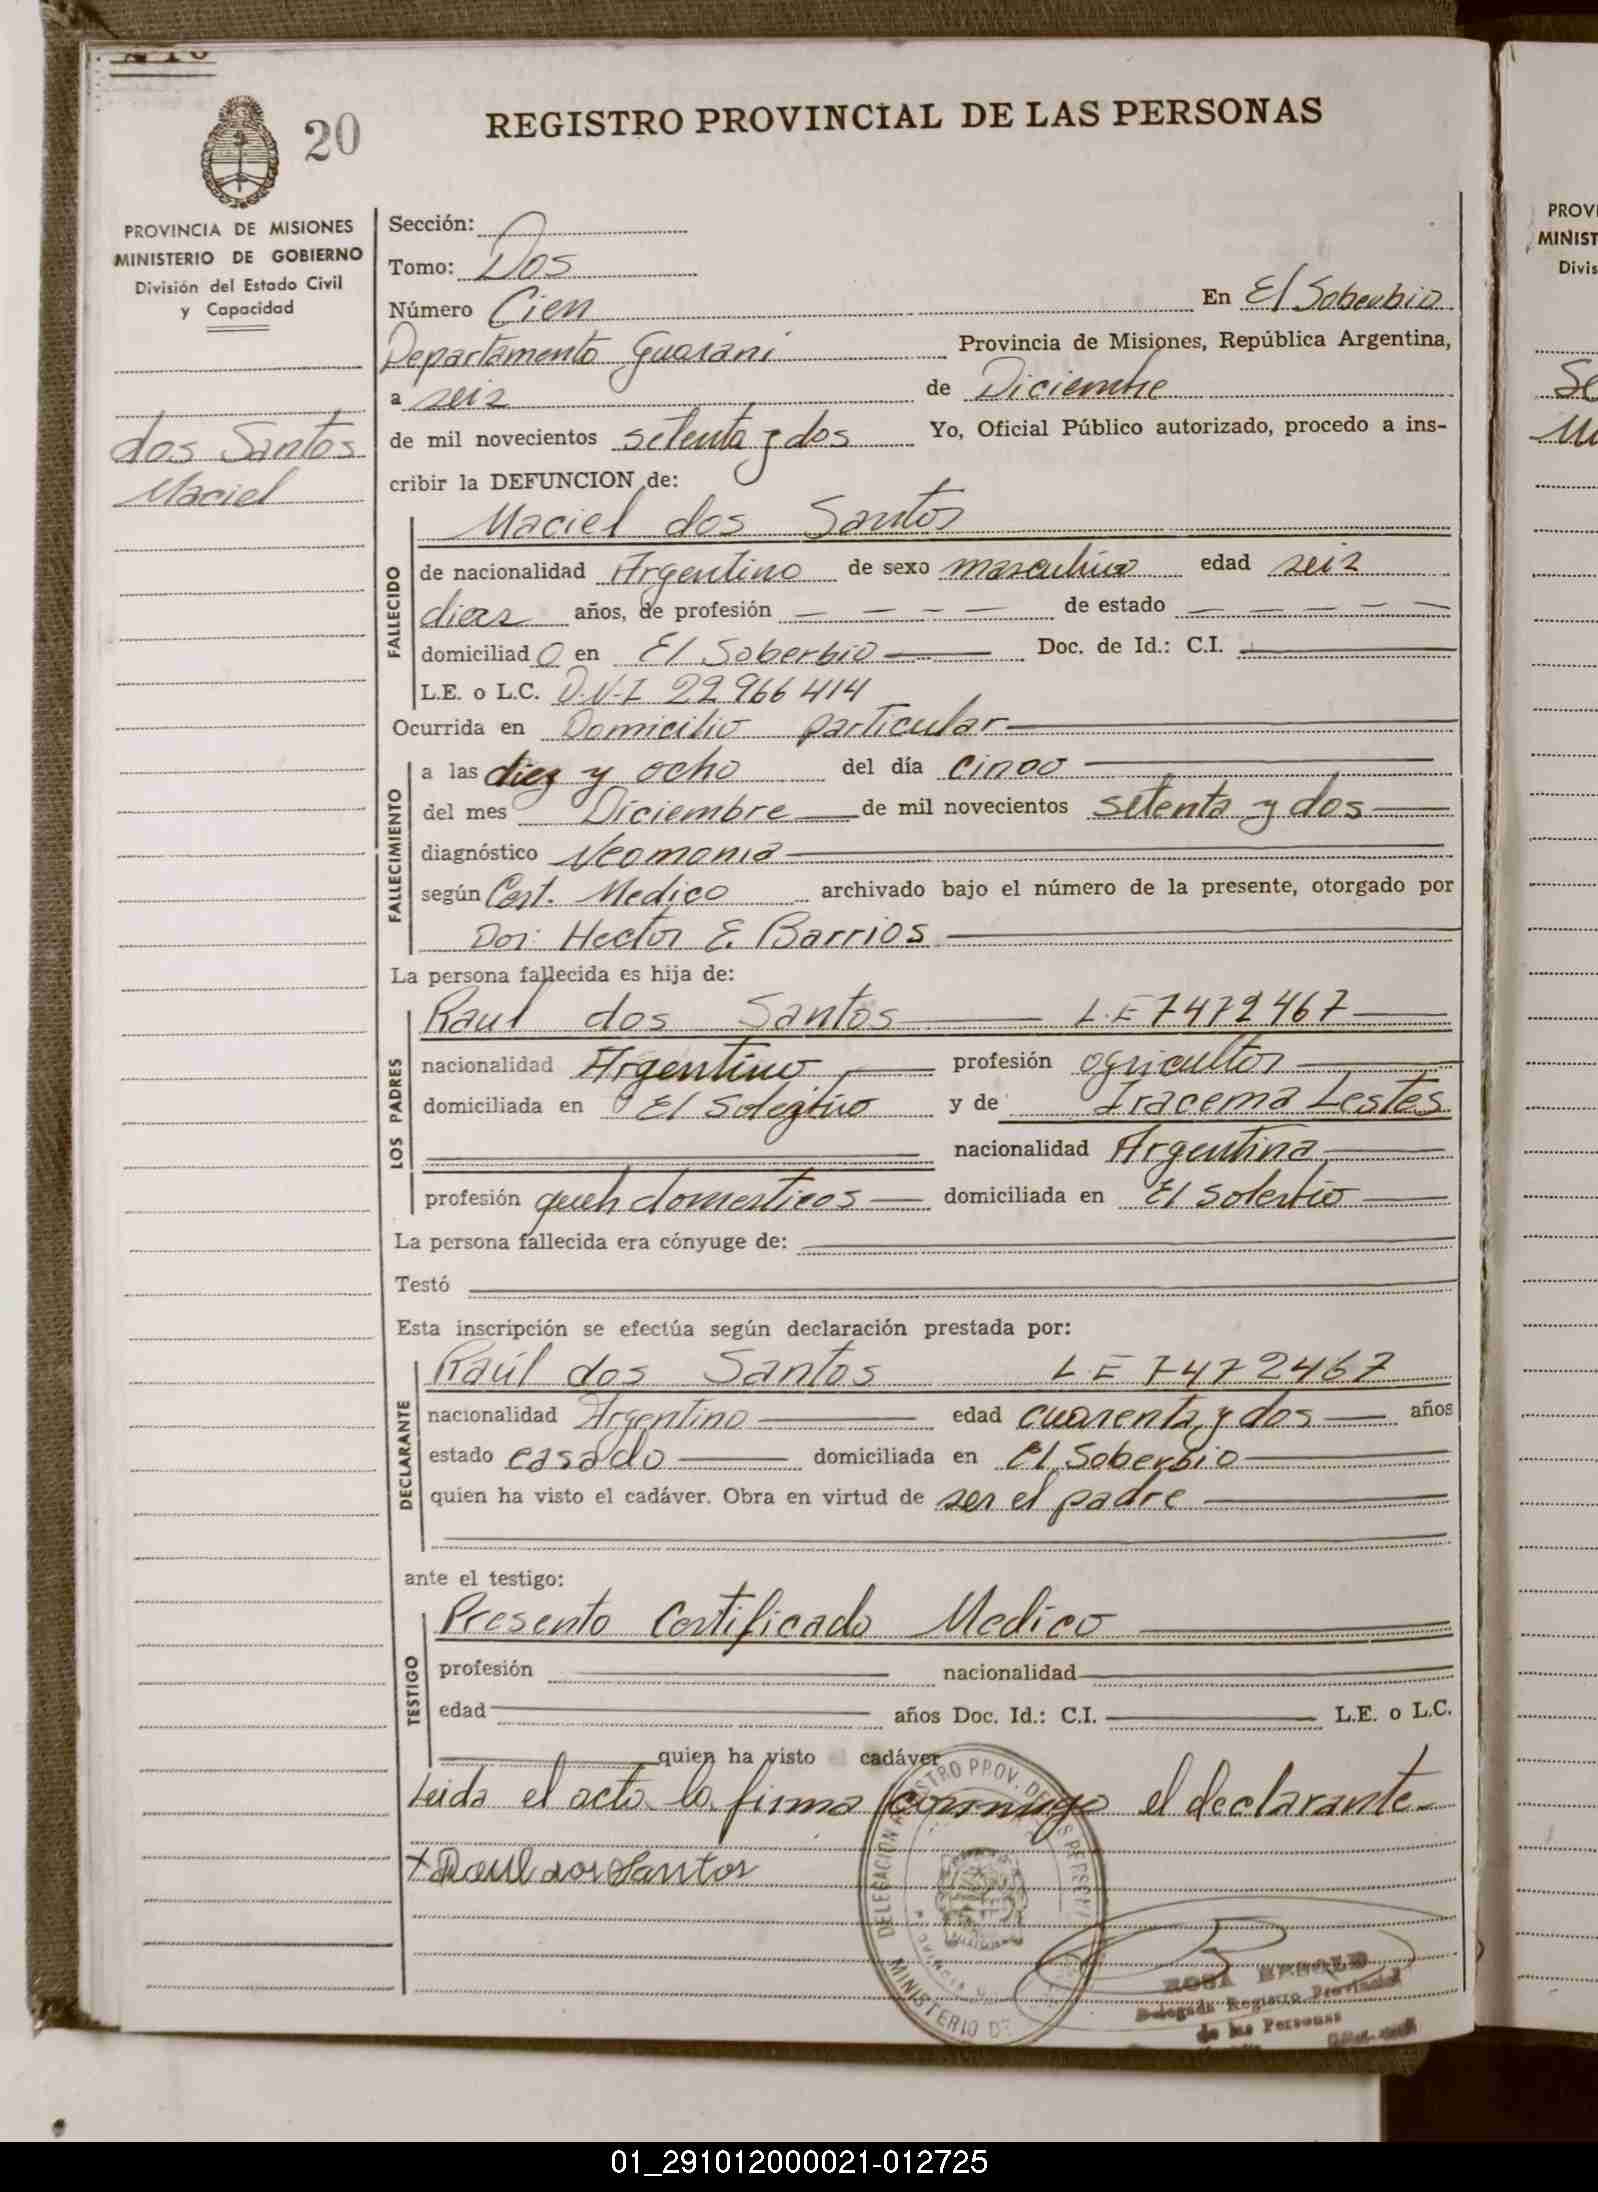 20
REGISTRO PROVINCIAL DE LAS PERSONAS
PROVINCIA DE MISIONES
MINISTERIO DE GOBIERNO
División del Estado Civil
y Capacidad
dos Santos
Maciel
Sección:
Tomo: Dos
Número Cien En El Soberbio
Departamento Guarani Provincia de Misiones, República Argentina,
a seis de Diciembre
de mil novecientos setenta y dos Yo, Oficial Público autorizado, procedo a ins-
cribir la DEFUNCION de:
FALLECIDO
Maciel dos Santos
de nacionalidad Argentino de sexo masculino edad seis
dias años, de profesión — — — — de estado — — — —
domiciliado en El Soberbio Doc. de Id.: C.I.
L.E. o L.C. D.N.I 22966414
Ocurrida en Domicilio particular
FALLECIMIENTO
a las diez y ocho del día cinco
del mes Diciembre de mil novecientos setenta y dos
diagnóstico Neomonia
según Cert. Medico archivado bajo el número de la presente, otorgado por
Dor: Hector E. Barrios
La persona fallecida es hija de:
LOS PADRES
Raul dos Santos L.E 7472467
nacionalidad Argentino profesión agricultor
domiciliada en El Soberbio y de Iracema Lestes
nacionalidad Argentina
profesión queh domesticos domiciliada en El Soberbio
La persona fallecida era cónyuge de:
Testó
Esta inscripción se efectúa según declaración prestada por:
DECLARANTE
Raúl dos Santos LE 7472467
nacionalidad Argentino edad cuarenta y dos años
estado casado domiciliada en El Soberbio
quien ha visto el cadáver. Obra en virtud de ser el padre
ante el testigo:
TESTIGO
Presento Certificado Medico
profesión nacionalidad
edad años Doc. Id.: C.I. L.E. o L.C.
quien ha visto el cadáver
Leida el acta la firma conmigo el declarante
x Raul dos Santos
DELEGACION REGISTRO PROV. DE LAS PERSONAS
MINISTERIO DE
ROSA
Delegada Registro Provincial
de las Personas
PROVI
MINIST
Divis
01_291012000021-012725